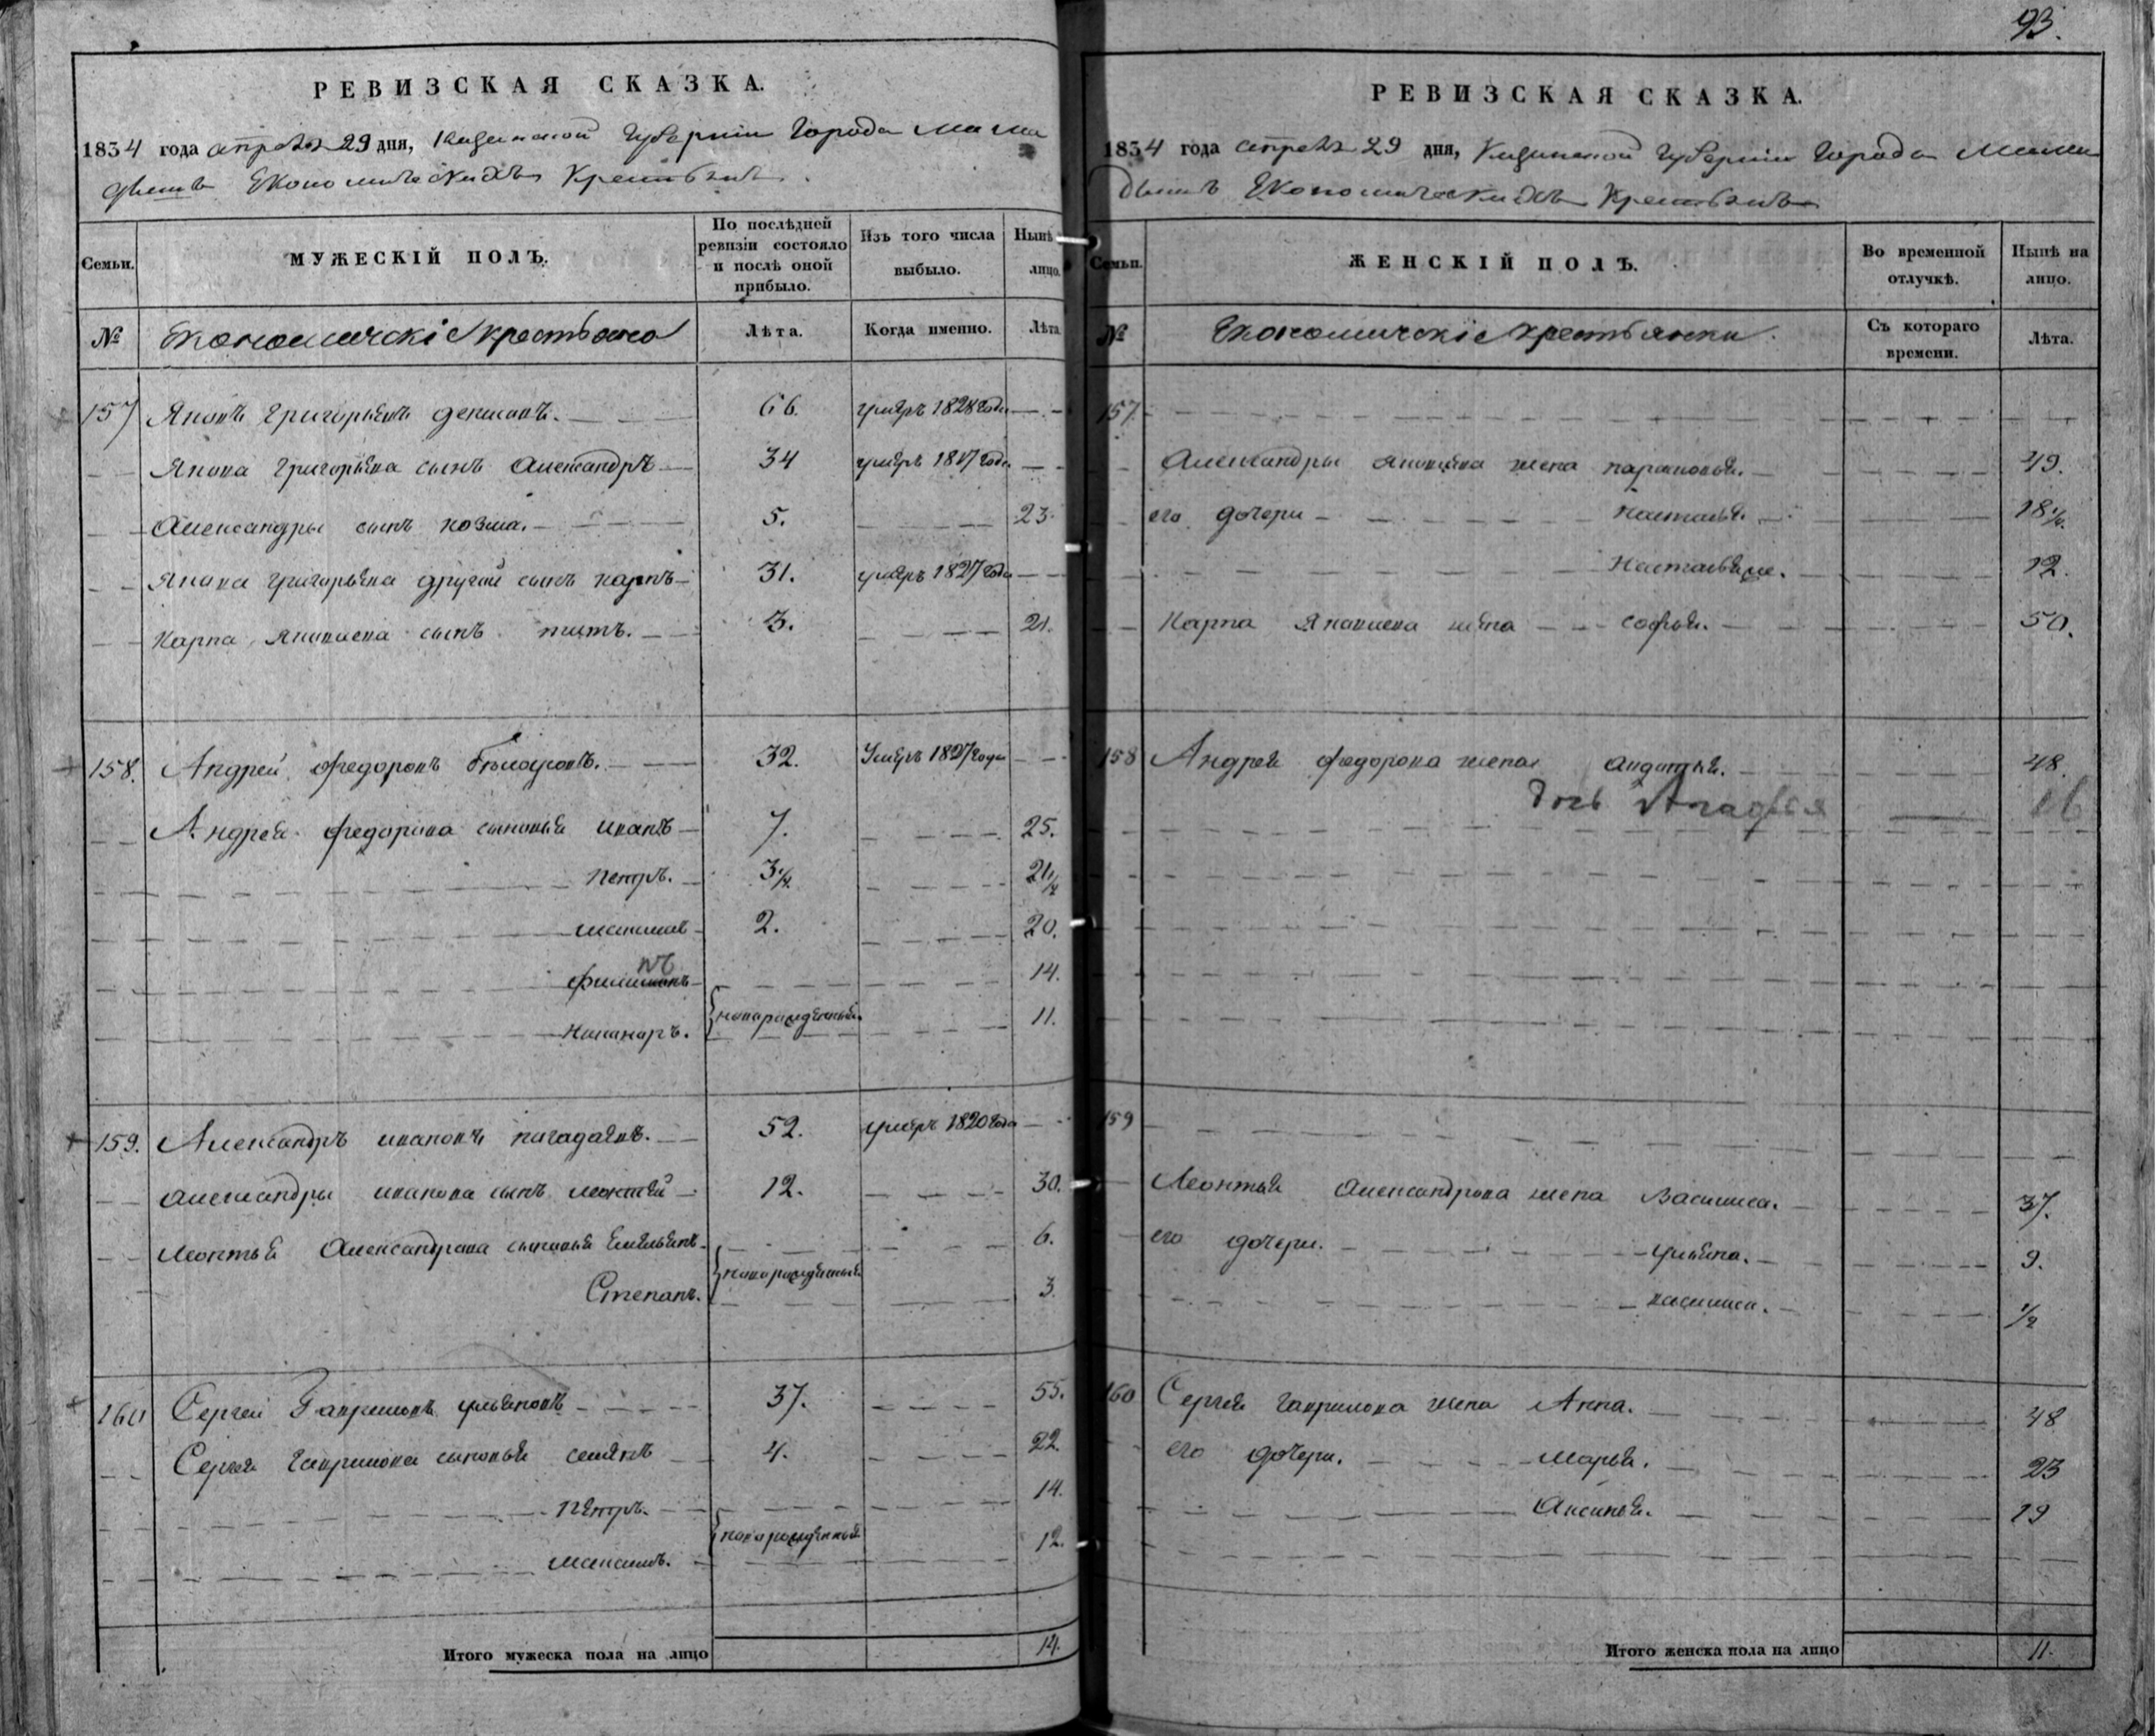 РЕВИЗСКАЯ СКАЗКА.
1834 года апреля 29 дня, Казанской Губернии Города Мама
дышъ Економическихъ Крестьянъ.
Семьи.
МУЖЕСКІЙ ПОЛЪ.
По послѣдней ревизіи состояло и послѣ оной прибыло.
Изъ того числа выбыло.
Нынѣ лицо.
№
Економическіе крестьяне
Лѣта.
Когда именно.
Лѣта
157 Григорьевъ 66. умеръ 1828 года
Григорьева сынъ Александръ 34 умеръ 18 7 года
Александры сынъ козма. 5. 23.
Григорьева другой сынъ карпъ 31. умеръ 1827 года
Карпа сынъ титъ. 3. 21.
158. Андрей федоровъ 32. Умеръ 1827 года
Андрея федорова сыновья иванъ 7. 25.
петръ. 3 1/4 21 1/4
максимъ 2. 20.
14.
никаноръ. новорожденные 11.
159. Александръ ивановъ 52. умеръ 1820 года
александры иванова сынъ леонтей 12. 30.
леонтья Александрова сыновья Емельянъ 6.
Степанъ. новорожденные 3.
160 Сергей Гавриловъ ульяновъ 37. 55.
Сергея гаврилова сыновья семенъ 4. 22.
петръ. 14.
максимъ. новорожденные 12.
Итого мужеска пола на лицо 14.
93.
РЕВИЗСКАЯ СКАЗКА.
1834 года апреля 29 дня, Казанской Губернии Города Мама
дышъ Економическихъ Крестьянъ
Семьи.
ЖЕНСКІЙ ПОЛЪ.
Во временной отлучкѣ.
Нынѣ на лицо.
№
Економическіе крестьянки.
Съ котораго времени.
Лѣта.
157
Александры жена парасковья. 49.
его дочери наталья. 18 1/4.
12.
Карпа жена софья. 50.
158 Андрея федорова жена авдотья. 48.
дочь Агафья 16
159
Леонтья александрова жена Василиса. 37.
его дочери. ульяна. 9.
василиса. 1/2
160 Сергея гаврилова жена Анна. 48
его дочери. марья. 23
Аксинья. 19
Итого женска пола на лицо 11.